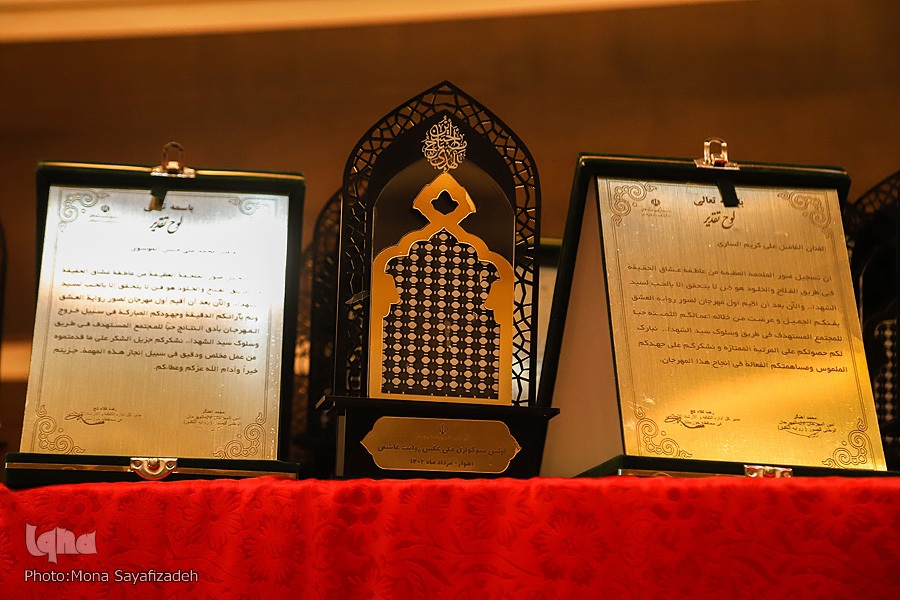 باسمه تعالی
لوح تقدیر
صور الملحمة العظيمة من عاطفة عشاق الحقيقة
في طريق الفلاح والخلود هو فن لا يتحقق إلا بالحب لسيد
الشهداء.. والآن بعد أن أقيم أول مهرجان لصور رواية العشق
وتم بآرائكم الدقيقة وجهودكم المباركة في سبيل خروج
المهرجان بأدق النتائج خيراً للمجتمع المستهدف في طريق
وسلوك سيد الشهداء.. نشكركم جزيل الشكر على ما قدمتموه
من عمل مخلص ودقيق في سبيل إنجاز هذه المهمة. جزيتم
خيراً وأدام الله عزكم وعطاءكم.
رضا کلاه کج
اولین سوگواره ملی عکس روایت عاشقی
اهواز - مرداد ماه ۱۴۰۲
باسمه تعالی
لوح تقدیر
الفنان الفاضل علي كريم الساري
إن تسجيل صور الملحمة العظيمة من عاطفة عشاق الحقيقة
في طريق الفلاح والخلود هو فن لا يتحقق إلا بالحب لسيد
الشهداء.. والآن بعد أن أقيم أول مهرجان لصور رواية العشق
بفنكم الجميل وعرضت من خلاله أعمالكم الثمينة حبا
للمجتمع المستهدف في طريق وسلوك سيد الشهداء.. نبارك
لكم حصولكم على المرتبة الممتازة و نشكركم على جهدكم
الملموس ومساهمتكم الفعالة في إنجاح هذا المهرجان.
رضا کلاه کج
محمد آهنگر
iqna
Photo:Mona Sayafizadeh